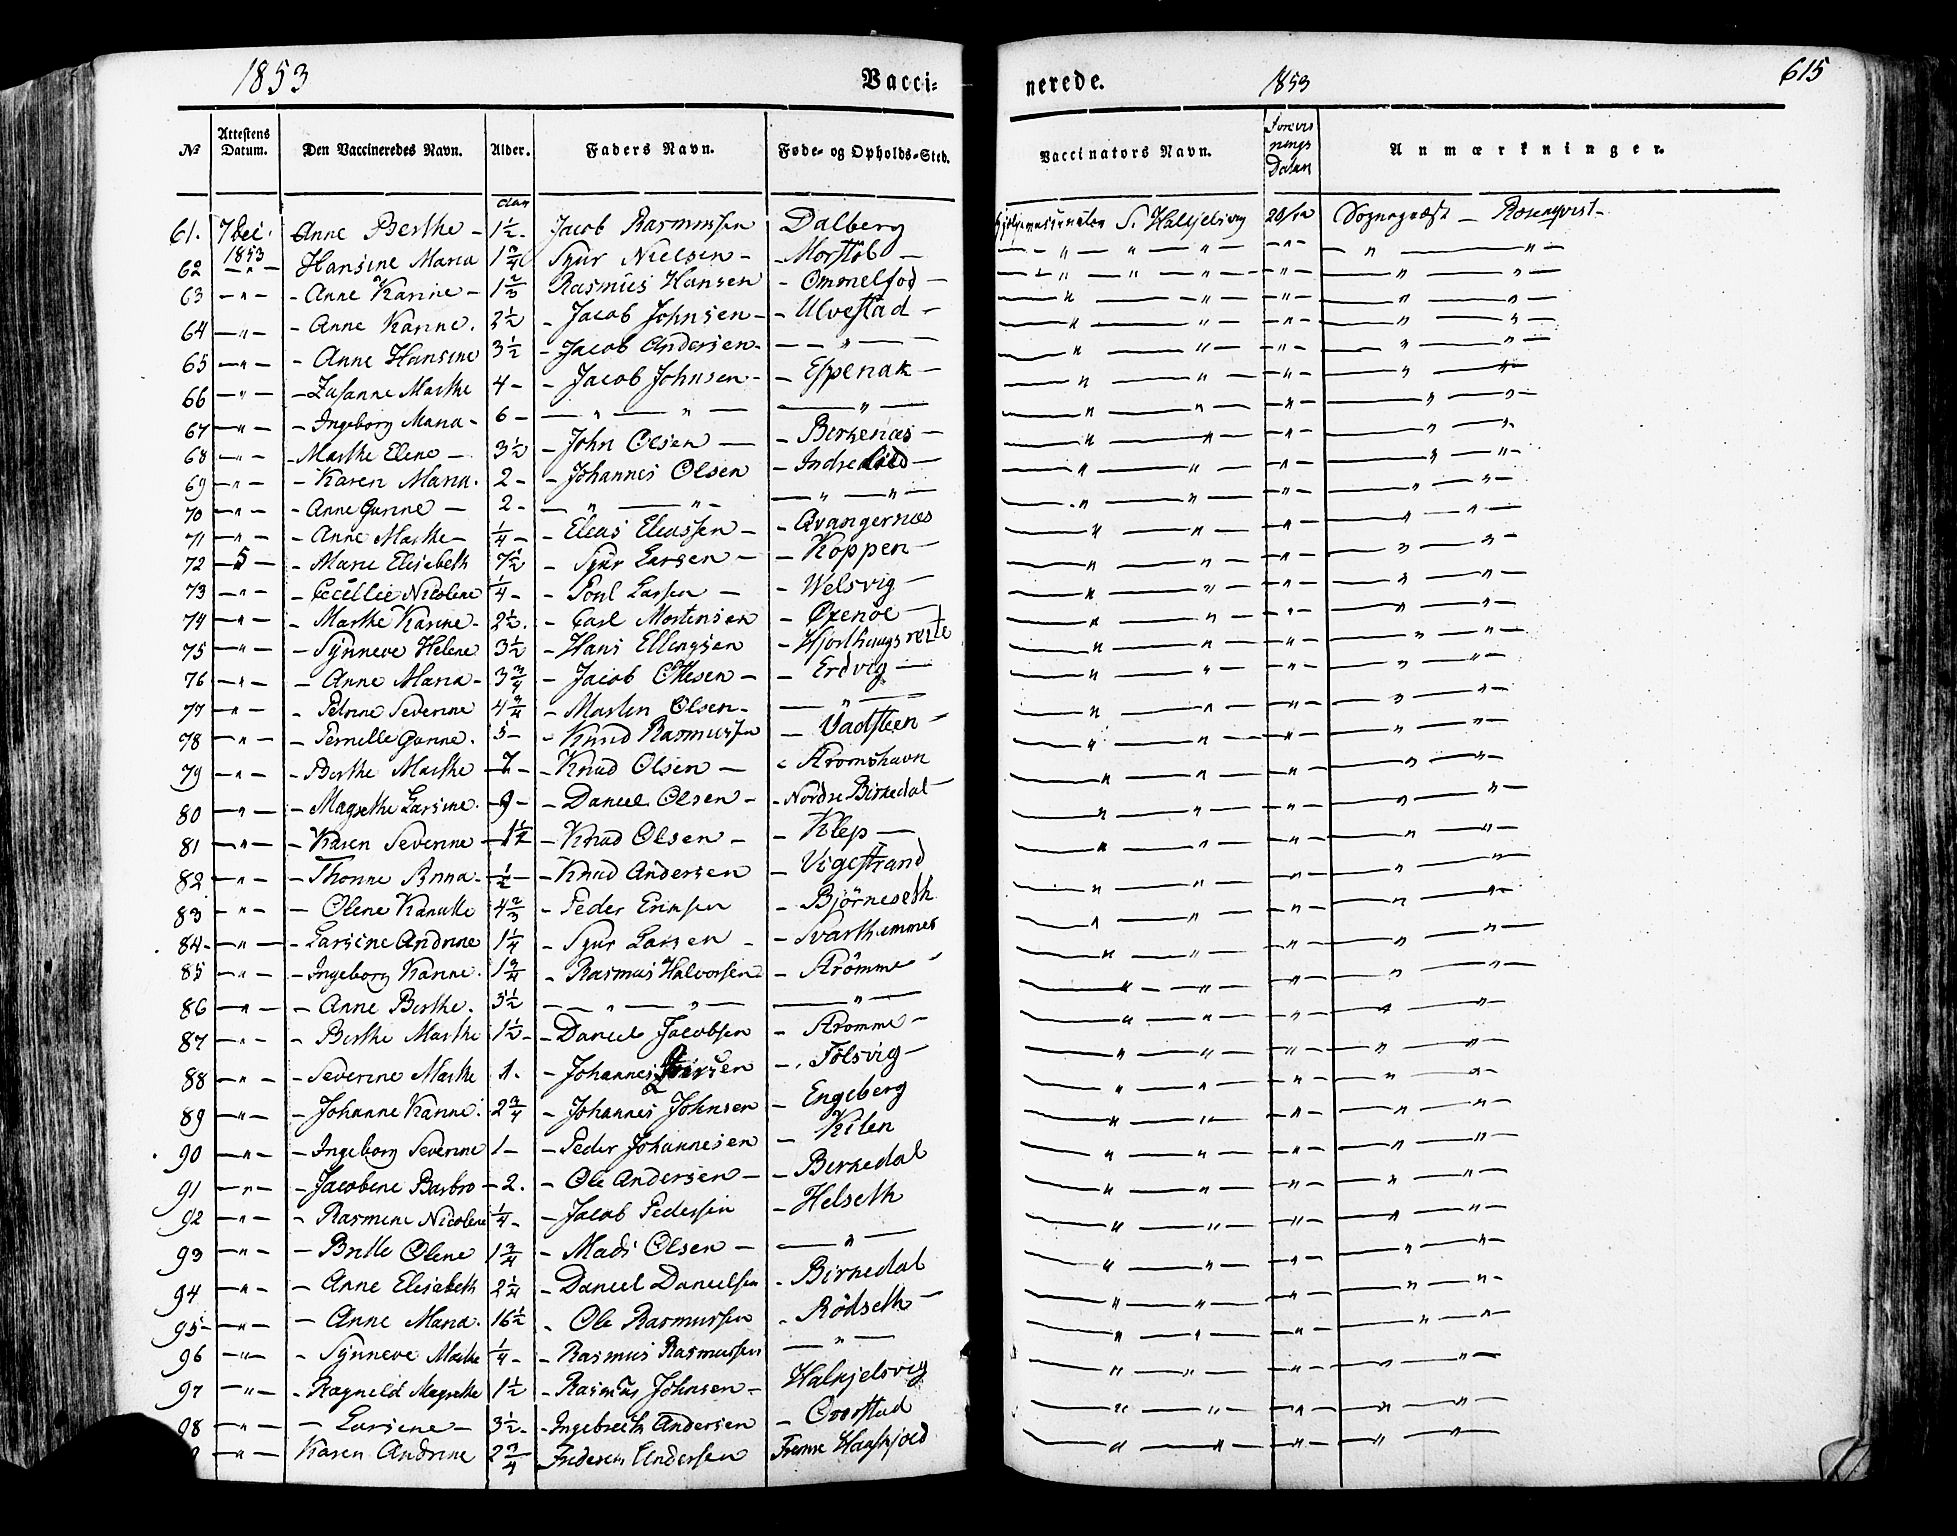 1853 Vacci- nerede. 1853 615
№ Attestens Datum. Den Vaccineredes Navn. Alder. Faders Navn. Føde- og Opholds-Sted. Vaccinators Navn. Datum Anmærkninger.
61. 7 Dec. 1853 Anne Berthe - 1½ - Jacob Rasmussen Dalberg S. Halkjelsvig 28/12 Sognepræst - Rosenqvist -
62 - " - Hansine Maria 1¾ Sjur Nielsen - - " - " " - " - - " - " -
63 - " - - Anne Karine - 1⅔ Rasmus Hansen - - " - " - " - - " - " -
64 - " - - Anne Karine. 2½ - Jacob Johnsen - - Ulvestad - - " - " - - " - - " - " -
65 - " - - Anne Hansine 3½ - Jacob Andersen - - - " - - " - " - - " - - " - " -
66 - " - - Zusanne Marthe 4 - - Jacob Johnsen - - Espenak - - " - " - - " - - " - " -
67 - " - - Ingeborg Maria - 6 - - " - " - - " - - " - " - - " - - " - " -
68 - " - - Marthe Elene - 3½ - John Olsen - - Birkenæs - - " - " - - " - - " - " -
69 - " - - Karen Maria. 2 - - Johannes Olsen - - " - " - - " - - " - " -
70 - " - - Anne Gurine - 2 - - " - " - - " - " - - " - " - - " - - " - " -
71 - " - - Anne Marthe - ¼ - - Elias Eliassen - - Qvangernæs - " - " - - " - - " - " -
72 - 5 - - Marie Elisabeth 7½ - Sjur Larsen - - Koppen - - " - " - - " - - " - " -
73 - " - - Cecillie Nicoline ¼ - - Poul Larsen - - Welsvig - - " - " - - " - - " - " -
74 - " - - Marthe Karine - 2½. - Carl Mortensen - Oxenøe - - " - " - - " - - " - " -
75 - " - - Synneve Helene 3½ - Hans Ellingsen - - " - " - - " - - " - " -
76 - " - - Anne Maria - 3¾ - Jacob Ottesen - - Erdvig - - " - " - - " - - " - " -
77 - " - - Petrine Severine 4¾ - Martin Olsen - - " - - " - " - - " - - " - " -
78 - " - - Pernille Gurine. 5 - - Knud Rasmussen - Vadsteen - - " - " - - " - - " - " -
79 - " - - Berthe Marthe - 7 - - Knud Olsen - - Strømshavn - " - " - - " - - " - " -
80 - " - - Magrethe Larsine. - 9 - - Daniel Olsen - - Nordre Birkedal - - " - " - - " - - " - " -
81 - " - - Karen Severine - 1½ - Knud Olsen - - Klep - - " - " - - " - - " - " -
82 - " - - Thonne Anna - ½ - - Knud Andersen - Vigestrand - " - " - - " - - " - " -
83 - " - - Olene Kanutte 4⅔ - Peder Eriksen - Bjørneseth - " - " - - " - - " - " -
84 - - " - - Larsine Andrine 1¼ - Sjur Larsen - - Svarthammer - " - " - - " - - " - " -
85 - " - - Ingeborg Karine. 1¾ - Rasmus Halvorsen - Strømme - - " - " - - " - - " - " -
86 - " - - Anne Berthe. 3½ - " - " - - " - - " - " - - " - - " - " -
87 - " - - Berthe Marthe 1½ - - Daniel Jacobsen - Strømme - - " - " - - " - - " - " -
88 - " - - Severine Marthe 1. - Johannes - Folsvig - - " - " - - " - - " - " -
89 - " - - Johanne Karine. 2¾ - Johannes Johnsen - Engeberg - " - " - - " - - " - " -
90 - " - - Ingeborg Severine 1 - - Peder Johannesen - Kilen - " - " - - " - - " - " -
91 - " - - Jacobine Barbro - 2. - Ole Andersen - - Birkedal - " - " - - " - - " - " -
92 - " - - Rasmine Nicoline ¼ - - Jacob Pedersen - Helseth - " - " - - " - - " - " -
93 - " - - Britte Olene 1¾ - Mads Olsen - - " - - " - " - - " - - " - " -
94 - " - - Anne Elisabeth 2¼ - Daniel Danielsen - Birkedal - " - " - - " - - " - " -
95 - - " - - Anne Maria. 16½ - Ole Rasmussen - Rødseth - - " - " - - " - - " - " -
96 - " - - Synneve Marthe ¼ - - Rasmus Rasmussen - " - - " - " - - " - - " - " -
97 - " - - Ragnild Magrethe 1½ - Rasmus Johnsen - Halkjelsvig - " - " - - " - - " - " -
98 - " - - Larsine - 3½ - - Ingebreth Andersen - Overstad - " - " - - " - - " - " -
- " - Karen Andrine 2¾ - Andersen - " - " - - " - - " - " -